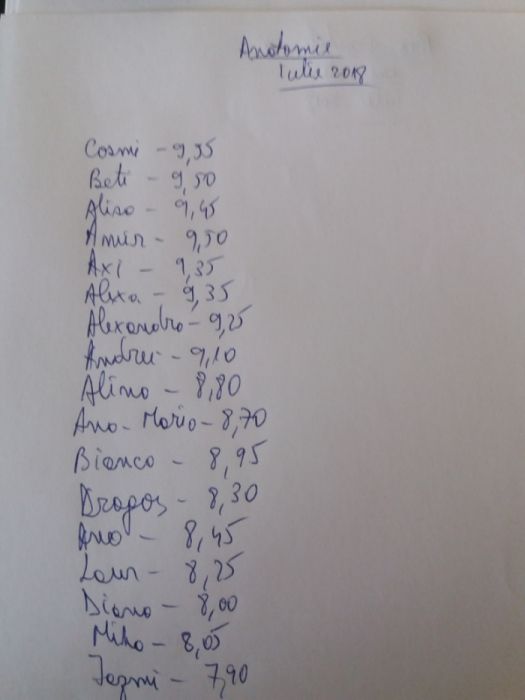 Anatomie
Iulie 2018
Cosmi - 9,55
Beti - 9,50
Alisa - 9,45
Amir - 9,50
Axi - 9,35
Alexa - 9,35
Alexandra - 9,25
Andrei - 9,10
Alina - 8,80
Ana-Maria - 8,70
Bianca - 8,95
Dragos - 8,30
Ana - 8,45
Laur - 8,25
Diana - 8,00
Miha - 8,05
- 7,90